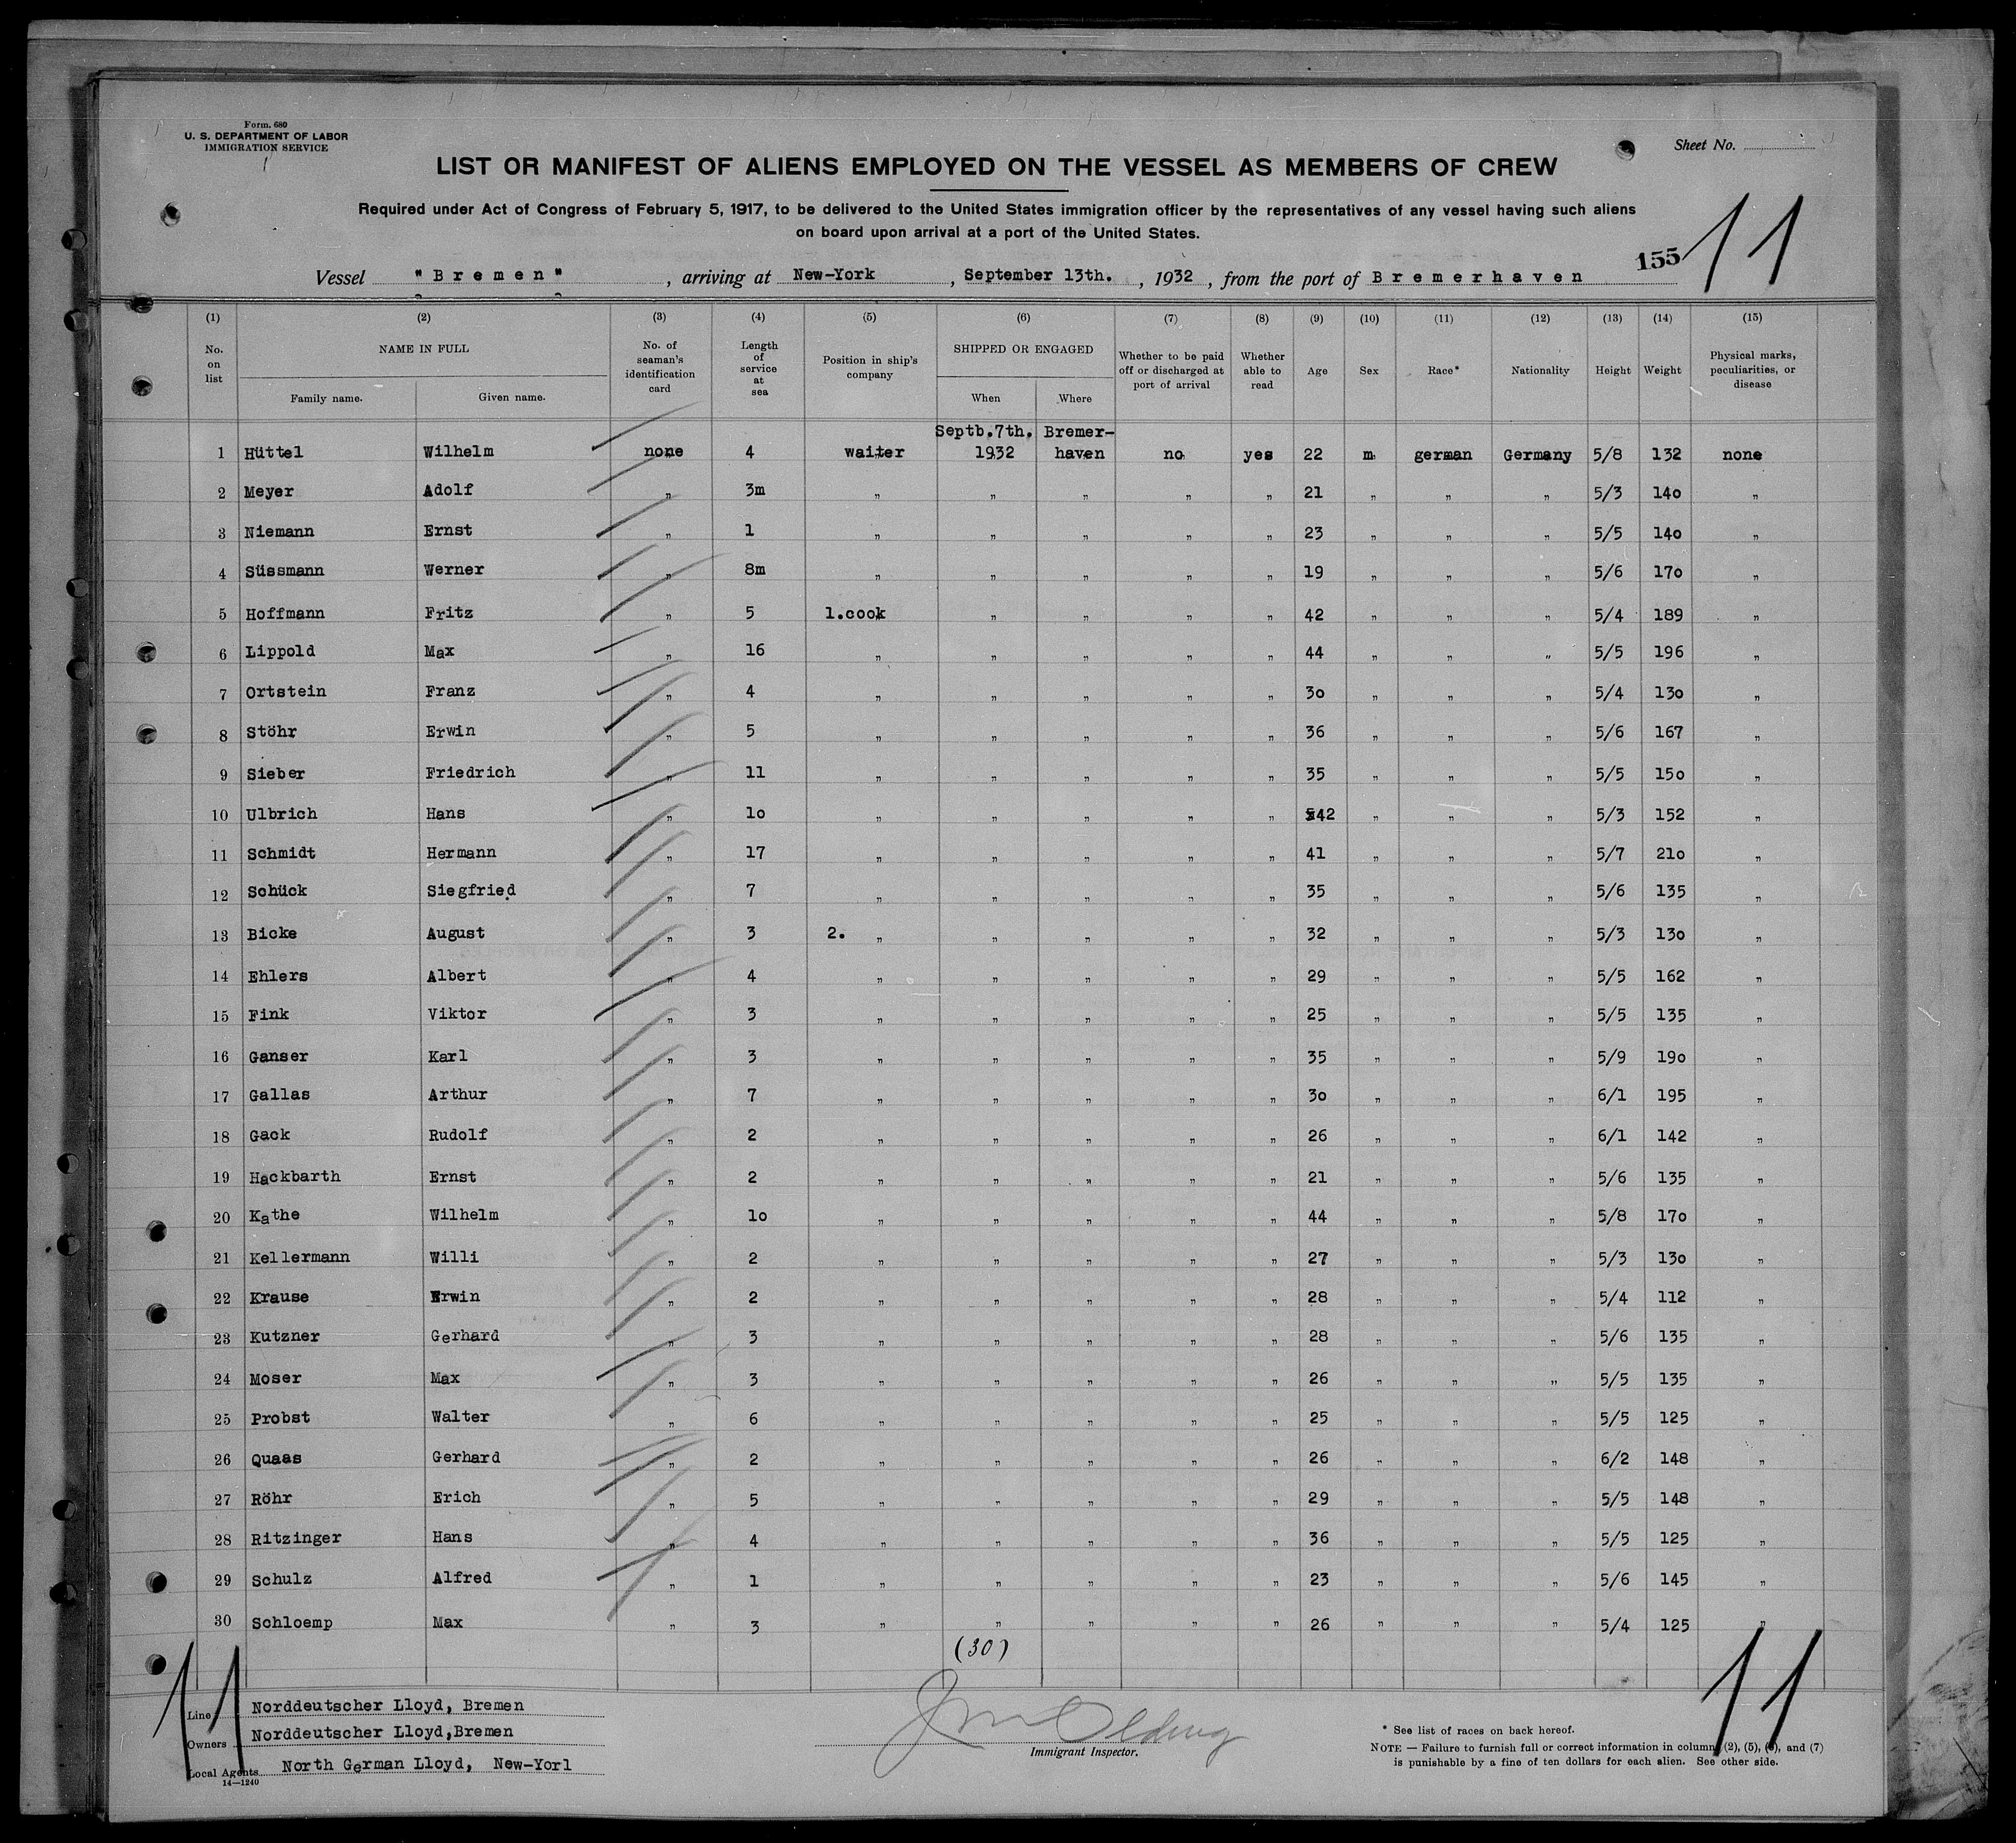 Form. 680
U. S. DEPARTMENT OF LABOR
IMMIGRATION SERVICE
Sheet No.
LIST OR MANIFEST OF ALIENS EMPLOYED ON THE VESSEL AS MEMBERS OF CREW
Required under Act of Congress of February 5, 1917, to be delivered to the United States immigration officer by the representatives of any vessel having such aliens
on board upon arrival at a port of the United States.
155 11
Vessel "Bremen" , arriving at New-York , September 13th. , 1932 , from the port of Bremerhaven
(1) (2) (3) (4) (5) (6) (7) (8) (9) (10) (11) (12) (13) (14) (15)
No. on list NAME IN FULL Family name. Given name. No. of seaman's identification card Length of service at sea Position in ship's company SHIPPED OR ENGAGED When Where Whether to be paid off or discharged at port of arrival Whether able to read Age Sex Race* Nationality Height Weight Physical marks, peculiarities, or disease
Septb.7th. Bremer-
1 Hüttel Wilhelm none 4 waiter 1932 haven no yes 22 m german Germany 5/8 132 none
2 Meyer Adolf " 3m " " " " " 21 " " " 5/3 14o "
3 Niemann Ernst " 1 " " " " " 23 " " " 5/5 14o "
4 Süssmann Werner " 8m " " " " " 19 " " " 5/6 17o "
5 Hoffmann Fritz " 5 1.cook " " " " 42 " " " 5/4 189 "
6 Lippold Max " 16 " " " " " 44 " " " 5/5 196 "
7 Ortstein Franz " 4 " " " " " 3o " " " 5/4 13o "
8 Stöhr Erwin " 5 " " " " " 36 " " " 5/6 167 "
9 Sieber Friedrich " 11 " " " " " 35 " " " 5/5 15o "
10 Ulbrich Hans " 1o " " " " " 42 " " " 5/3 152 "
11 Schmidt Hermann " 17 " " " " " 41 " " " 5/7 21o "
12 Schück Siegfried " 7 " " " " " 35 " " " 5/6 135 "
13 Bicke August " 3 2. " " " " " 32 " " " 5/3 13o "
14 Ehlers Albert " 4 " " " " " 29 " " " 5/5 162 "
15 Fink Viktor " 3 " " " " " 25 " " " 5/5 135 "
16 Ganser Karl " 3 " " " " " 35 " " " 5/9 19o "
17 Gallas Arthur " 7 " " " " " 3o " " " 6/1 195 "
18 Gack Rudolf " 2 " " " " " 26 " " " 6/1 142 "
19 Hackbarth Ernst " 2 " " " " " 21 " " " 5/6 135 "
20 Kathe Wilhelm " 1o " " " " " 44 " " " 5/8 17o "
21 Kellermann Willi " 2 " " " " " 27 " " " 5/3 13o "
22 Krause Erwin " 2 " " " " " 28 " " " 5/4 112 "
23 Kutzner Gerhard " 3 " " " " " 28 " " " 5/6 135 "
24 Moser Max " 3 " " " " " 26 " " " 5/5 135 "
25 Probst Walter " 6 " " " " " 25 " " " 5/5 125 "
26 Quaas Gerhard " 2 " " " " " 26 " " " 6/2 148 "
27 Röhr Erich " 5 " " " " " 29 " " " 5/5 148 "
28 Ritzinger Hans " 4 " " " " " 36 " " " 5/5 125 "
29 Schulz Alfred " 1 " " " " " 23 " " " 5/6 145 "
30 Schloemp Max " 3 " " " " " 26 " " " 5/4 125 "
(30)
11 11
Line Norddeutscher Lloyd, Bremen
Owners Norddeutscher Lloyd,Bremen
Local Agents North German Lloyd, New-Yorl
14—1240
Immigrant Inspector.
* See list of races on back hereof.
NOTE — Failure to furnish full or correct information in column (2), (5), (6), and (7)
is punishable by a fine of ten dollars for each alien. See other side.